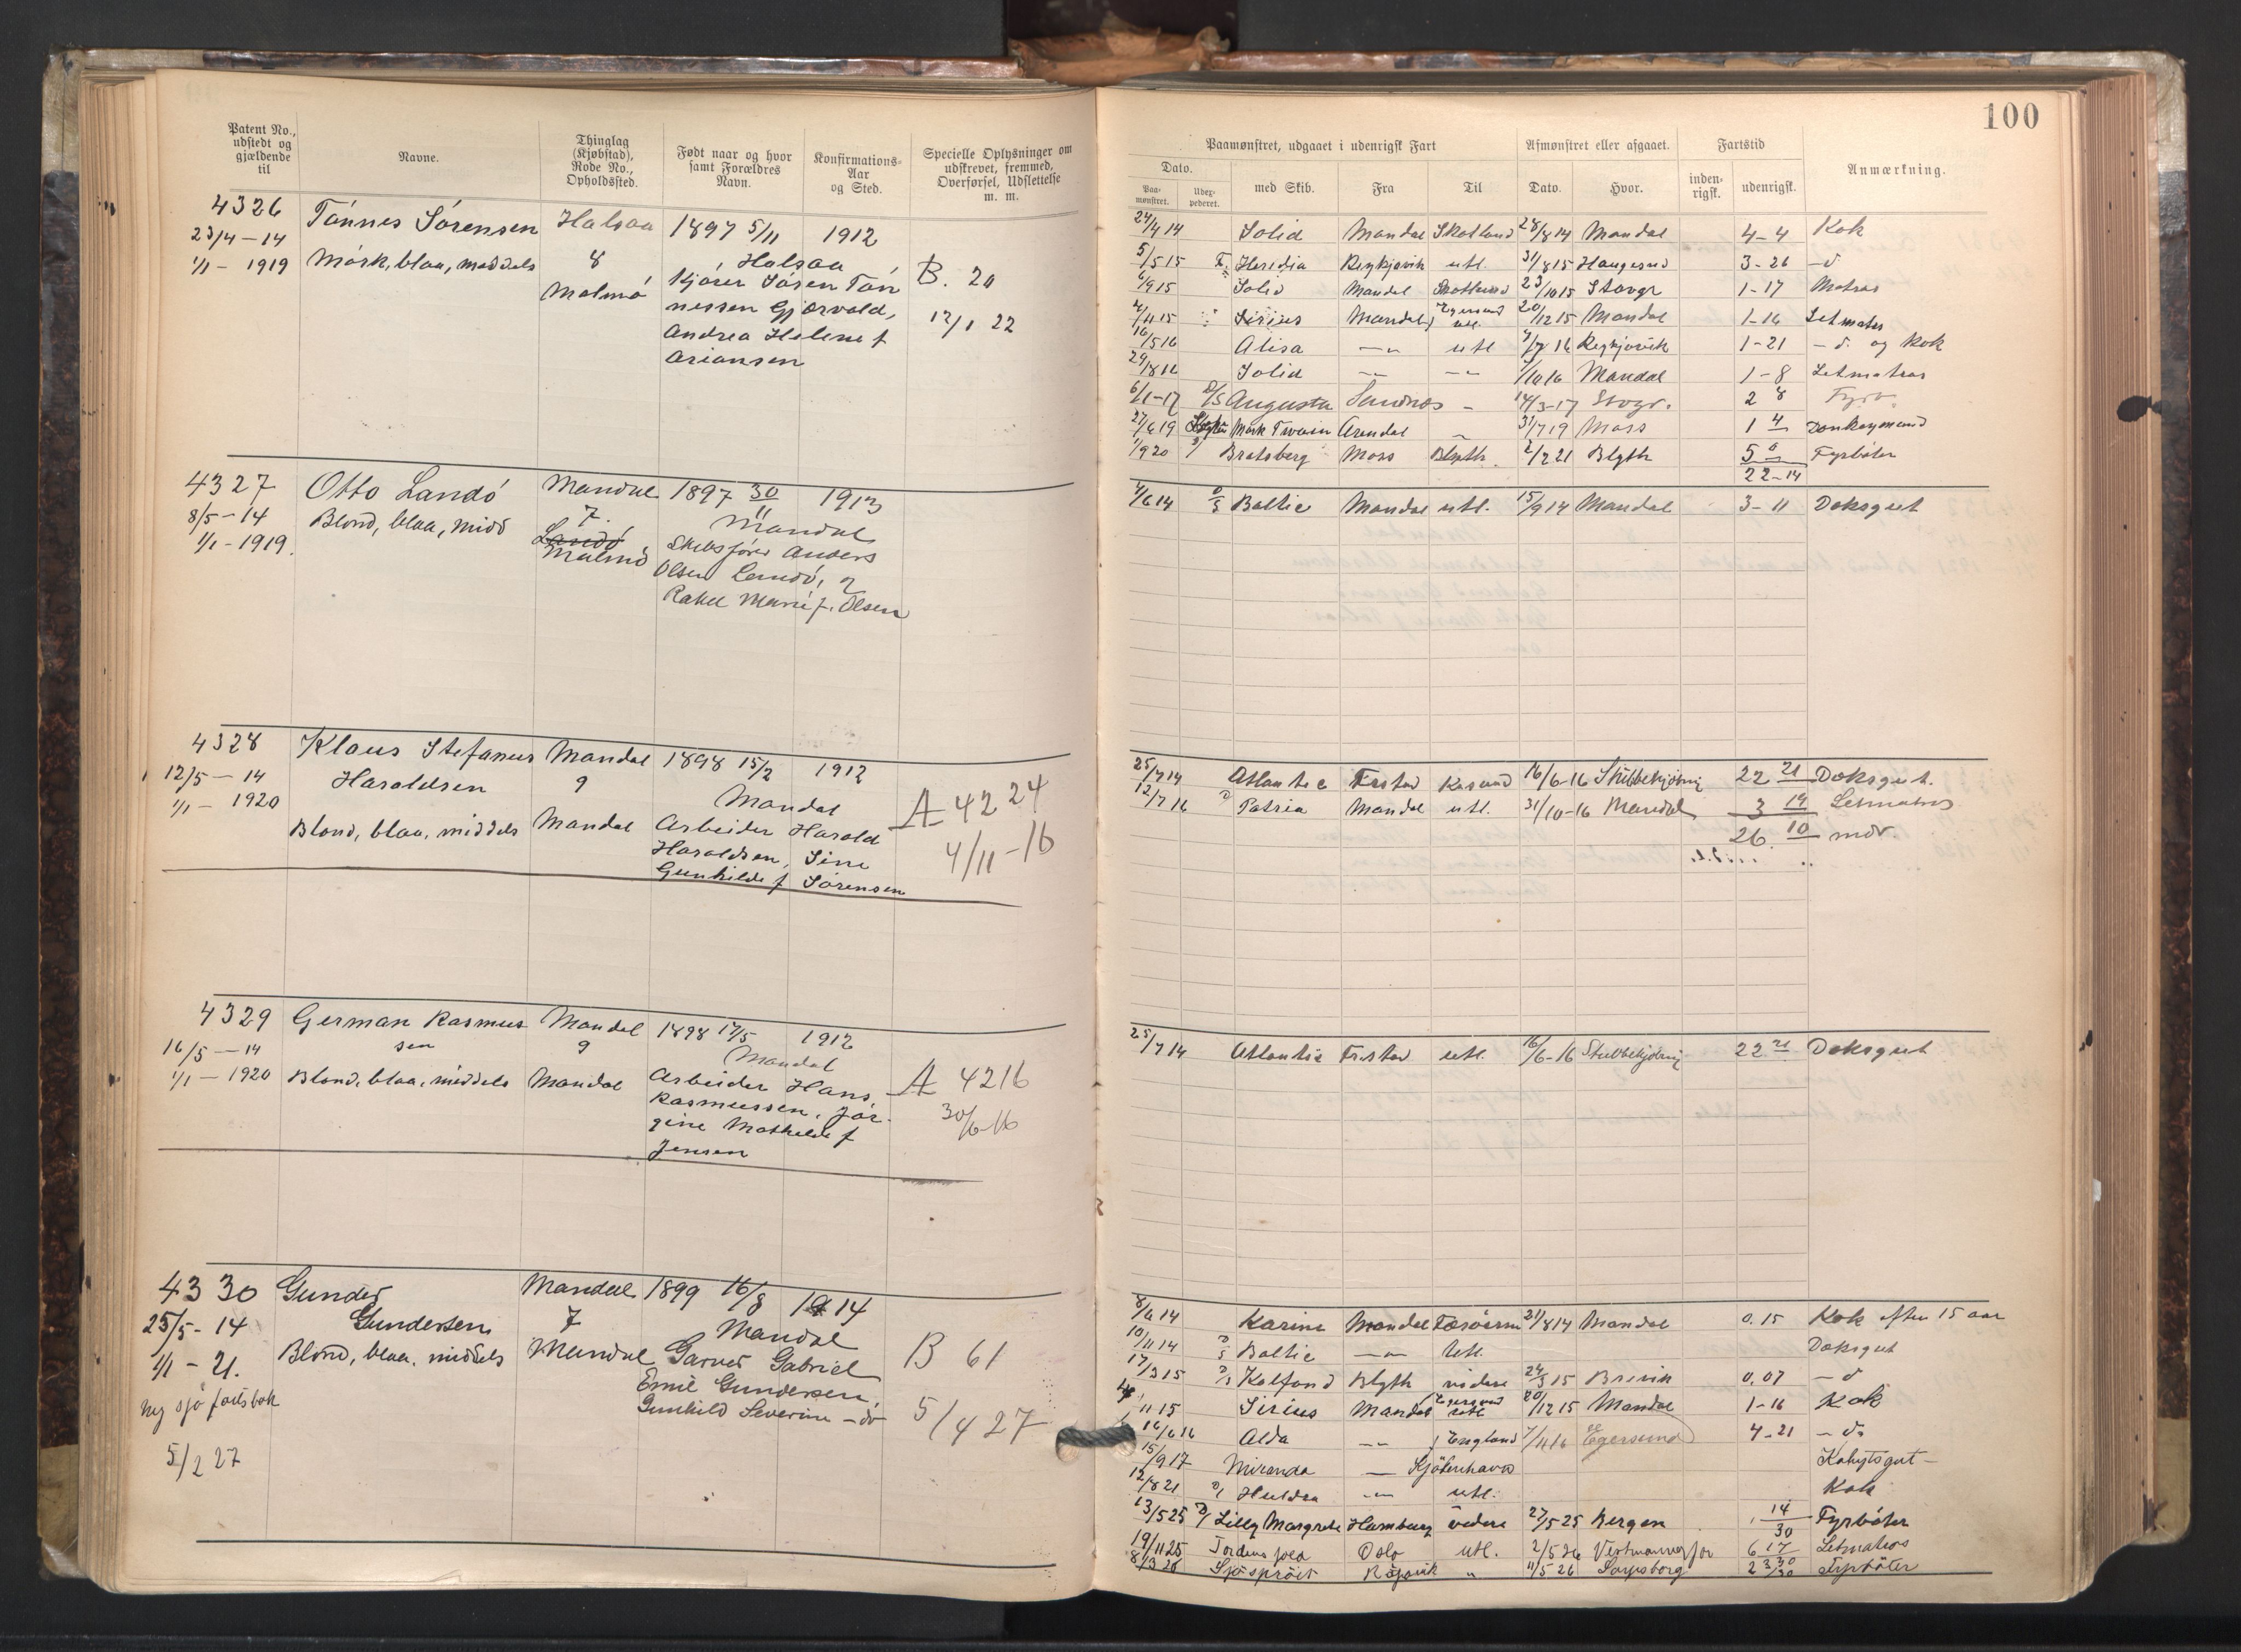 Patent No., udstedt og gjældende til
Navne.
Thinglag (Kjøbstad), Rode No., Opholdssted.
Født naar og hvor samt Forældres Navn.
Konfirmations-Aar og Sted.
Specielle Oplysninger om udskrevet, fremmed, Overførsel, Udslettelse m. m.
4326 Tónnes Sórensen Halsaa 1897 5/11 1912
23/4-14 Mórk, blaa, middels 8 Halsaa
1/1 - 1919 Malmö Kjórer Sósen Tón B. 20
nessen Gjervold, 12/1 22
Andrea Helene f
Ariansen
4327 Otto Landó Mandal 1897 30/11 1913
8/5-14 Blond, blaa, midd 7. Mandal
1/1-1919. Landó Skibsfórer Anders
Malmö Olsen Landó, og
Rakel Marie f. Olsen
4328 Klaus Stefanus Mandal 1898 15/2 1912
12/5-14 Haraldsen 9 Mandal
1/1-1920 Blond, blaa, middels Mandal Arbeider Harald A 4224
Haraldsen, Sine 4/11-16
Gunhilde f Sórensen
4329 German Rasmus Mandal 1898 17/5 1912
16/5-14 sen 9 Mandal
1/1-1920 Blond, blaa, middels Mandal Arbeider Hans A 4216
Rasmussen, Jór- 30/6-16
gine Mathilde f
Jensen
4330 Gunder Mandal 1899 16/8 1914
25/5-14 Gundersen 7 Mandal
1/1-21. Blond, blaa, middels Mandal Garver Gabriel B 61
Emil Gundersen,
ny sjöfartsbok Gunhild Severine - do 5/4 27
5/2 27
100
Paamønstret, udgaaet i udenrigsk Fart
Afmønstret eller afgaaet.
Fartstid
Anmærkning.
Dato.
Paa-mønstret.
Udex-pederet.
med Skib.
Fra
Til
Dato.
Hvor.
inden-rigsk.
udenrigsk.
24/4 14 Solid Mandal Skotland 28/8 14 Mandal 4-4 Kok
5/5 15 Heridia Reykjavik utl. 31/8 15 Haugesund 3-26 - d
6/9 15 Solid Mandal Skotland 23/10 15 Stavgr 1-17 Matros
4/11 15 Sirius Mandal Egersund utl. 20/12 15 Mandal 1-16 Letmatros
16/5 16 Alisa -"- utl 7/7 16 Reykjavik 1-21 - d. og Kok
29/8 16 Solid -"- -"- 7/10 16 Mandal 1-8 Letmatros
6/1-17 D/S Augusta Sandnes - 14/3-17 Stvgr. 2 8 Fyrb.
27/6 19 Mark Twain Arendal - 31/7 19 Moss 1 4 Donkeymand
1/9 20 Bratsberg Moss Blyth 2/2 21 Blyth 5 0 Fyrböter
22-14
4/6 14 D/S Baltic Mandal utl. 15/9 14 Mandal 3-11 Deksgut
25/7 14 Atlantic Frstad 16/6-16 Stubbekjöbing 22 21 Deksgut.
12/7 16 Patria Mandal utl. 31/10-16 Mandal 3 19 Letmatros
26. 10 mdr.
25/7 14 Atlantic Frstad utl. 16/6-16 Stubbekjöbing 22 21 Deksgut
8/6 14 Karine Mandal Færöerne 21/8 14 Mandal 0.15 Kok efter 15 aar
10/11 14 D/S Baltic -"- Utl. Deksgut
17/3 15 Kalfond Blyth videre 24/3 15 Brevik 0.07 - d
4/11 15 Sirius Mandal Egersund utl 20/12 15 Mandal 1-16 Kok
16/6 16 Alda -"- England 7/11 16 Egersund 4-21 - do
15/9 17 Miranda - Kjöbenhavn Kahytsgut-
12/8 21 Huldra -"- utl. Kok
13/5 25 Lilly Margrete Hamburg videre 27/5 25 Bergen 14/30 Fyrböter
19/11 25 Tordenskjold Oslo utl. 2/5 26 6 17 Letmatros
8/3 26 " 11/5 26 Sarpsborg 2 Fyrböter